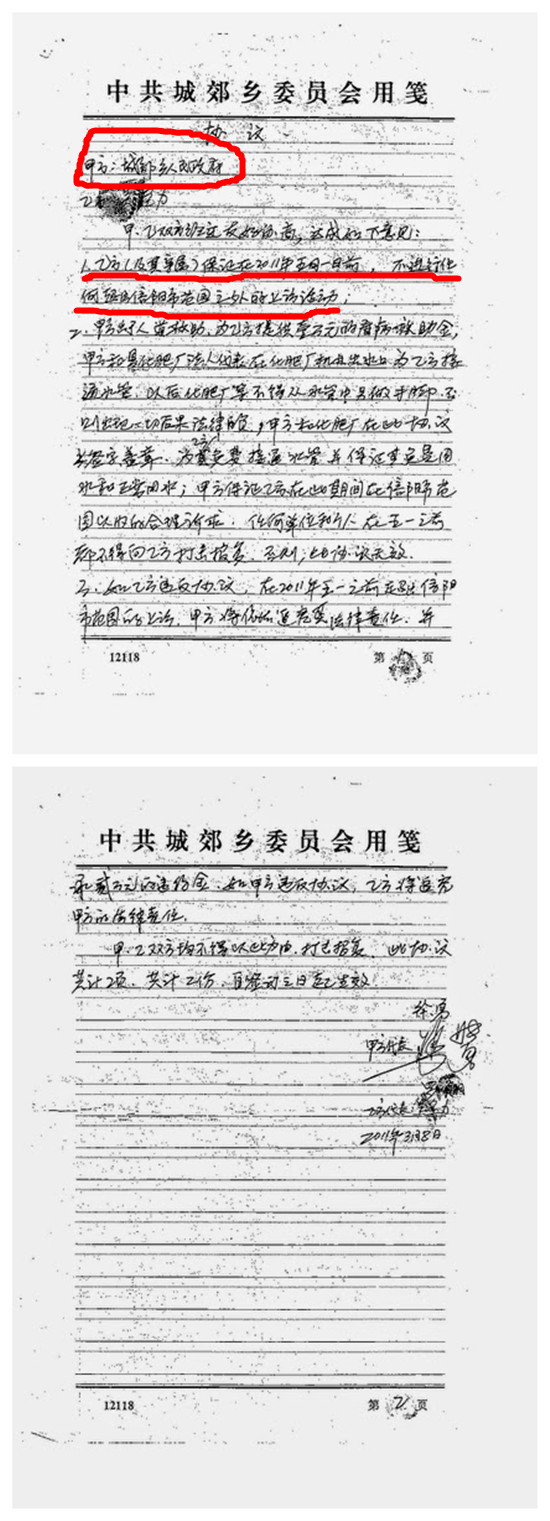 中共城郊乡委员会用笺
协议
甲方：城郊乡人民政府
乙 力
甲、乙双方经过友好协商，达成如下意见：
1、乙方（及其亲属）保证在2011年五月一日前，不进行任
何超出信阳市范围之外的上访活动；
2、甲方出 人道救助，为乙方提供壹万元的 病救助金，
甲方和县化肥厂法人代表在化肥厂机井出水口为乙方接
通水管，以后化肥厂等不得从水管中另做手脚，否
则出现一切后果法律自负，甲方和化肥厂在此协议
签字盖章 乙方 免费接通水管并保证 是用
水和正常用水；甲方保证乙方在此期间在信阳市范
围以内的合理诉求，任何单位和个人在五一之前
都不得向乙方打击报复，否则，此协议无效。
3、如乙方违反协议，在2011年五一之前 出信阳
市范围的上访，甲方将依法追究其法律责任，并
12118
第 页
中共城郊乡委员会用笺
承 贰万元的违约金，如甲方违反协议，乙方将追究
甲方的法律责任。
甲、乙双方均不得以此为由，打击报复，此协议
共计2页，共计2份，自签订之日起生效
徐勇
甲方代表
乙方代表 力
2011年3月8日
12118
第 2 页